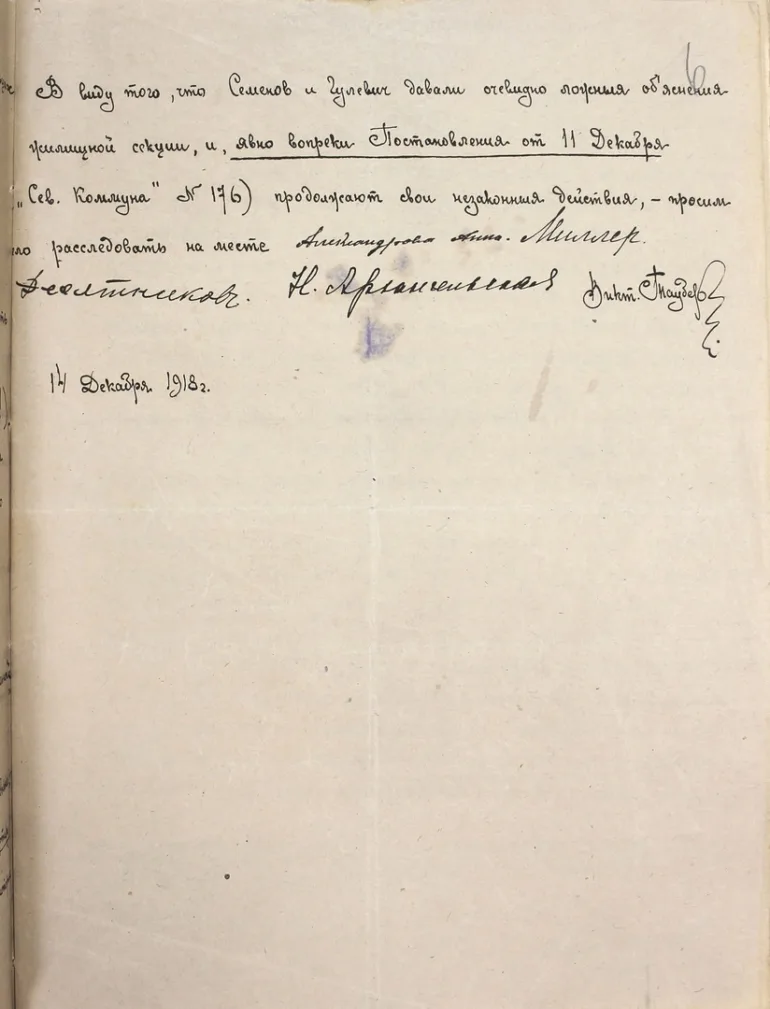 6
В виду того, что Семенов и Гулевич давали очевидно ложныя об'яснения
жилищной секции, и, явно вопреки Постановления от 11 Декабря
„Сев. Коммуна" № 176) продолжают свои незаконныя действия, – просим
расследовать на месте Александрова Анна. Миллер.
Десятников. Н. Архангельская Викт. Таубер
14 Декабря 1918 г.